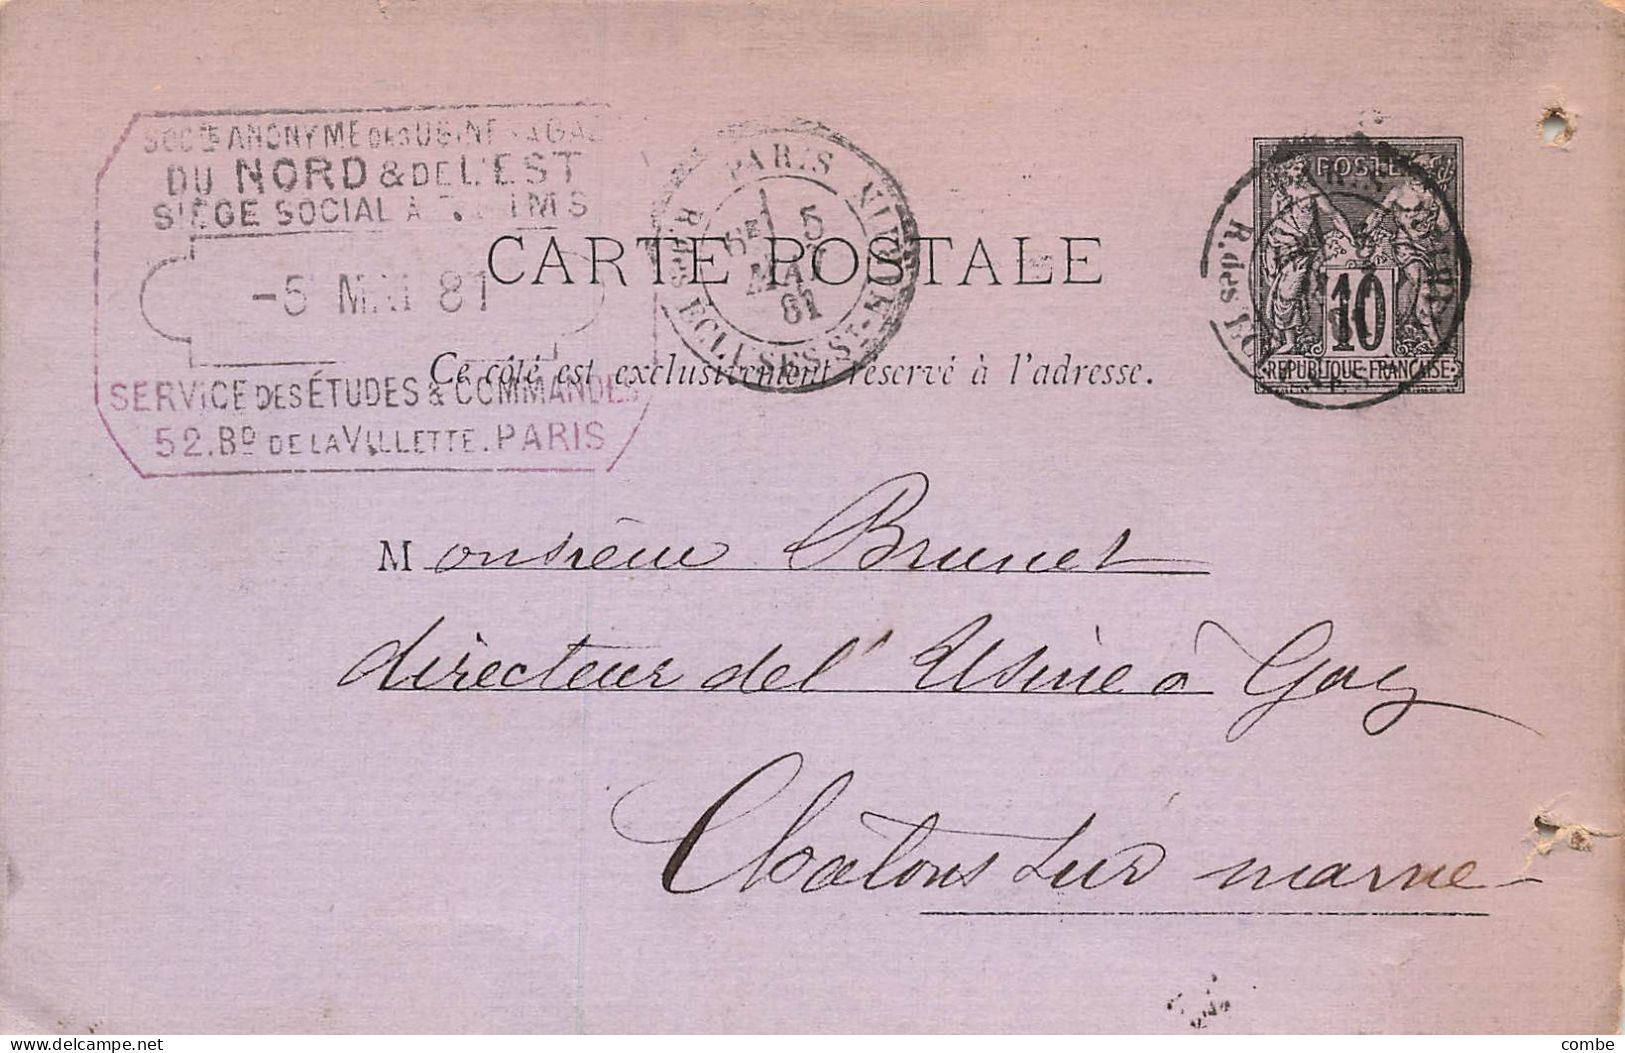 SOCTÉ ANONYME DES USINES A GAZ
DU NORD & DE L'EST
SIÈGE SOCIAL A
-5 MAI 81
SERVICE DES ÉTUDES & COMMANDES
52. BD DE LA VILLETTE. PARIS
PARIS
5
MAI
81
R. des ECLUSES ST-MARTIN
CARTE POSTALE
Ce côté est exclusivement réservé à l'adresse.
POSTES
10
RÉPUBLIQUE FRANÇAISE
R. des
Monsieur Brunet
directeur de l'Usine à Gaz
Châlons sur marne
combe